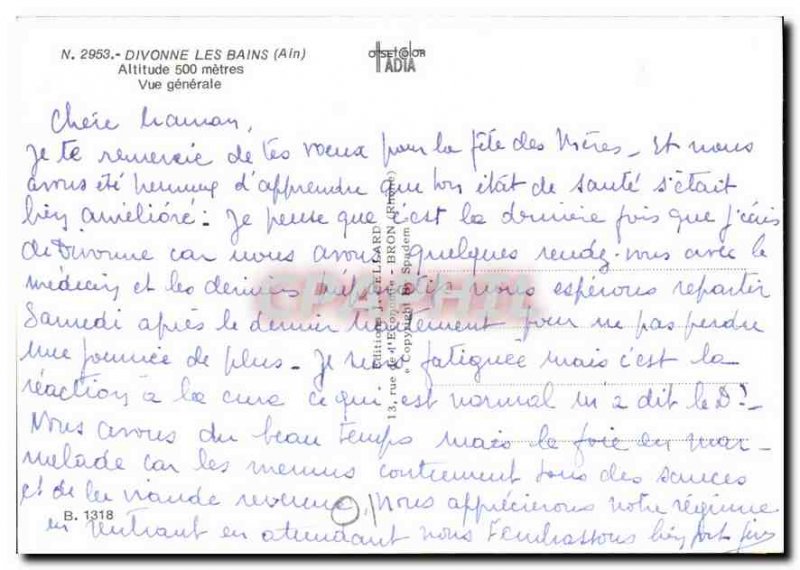 N. 2953.- DIVONNE LES BAINS (Ain)
Altitude 500 mètres
Vue générale
OFFSETCOLOR
TADIA
Chère Maman,
Je te remercie de tes voeux pour la fête des Mères - Et nous
avons été heureux d'apprendre que ton état de santé s'était
bien amélioré. Je pense que c'est la dernière fois que j'écris
de Divonne car nous avons quelques rendez-vous avec le
médecin et les derniers nous espérons repartir
Samedi après le dernier traitement pour ne pas perdre
une journée de plus - Je suis fatiguée mais c'est la
réaction à la cure ce qui est normal m'a dit le Dr -
Nous avons du beau temps mais le foie en mar-
melade car les menus contiennent tous des sauces
et de la viande revenue. Nous apprécierons notre régime
en rentrant en attendant nous t'embrassons bien fort
B. 1318
Editions J. CELLARD
13, rue de l'Economie - BRON (Rhône)
© Copyright by Spadem
CPAPHIL